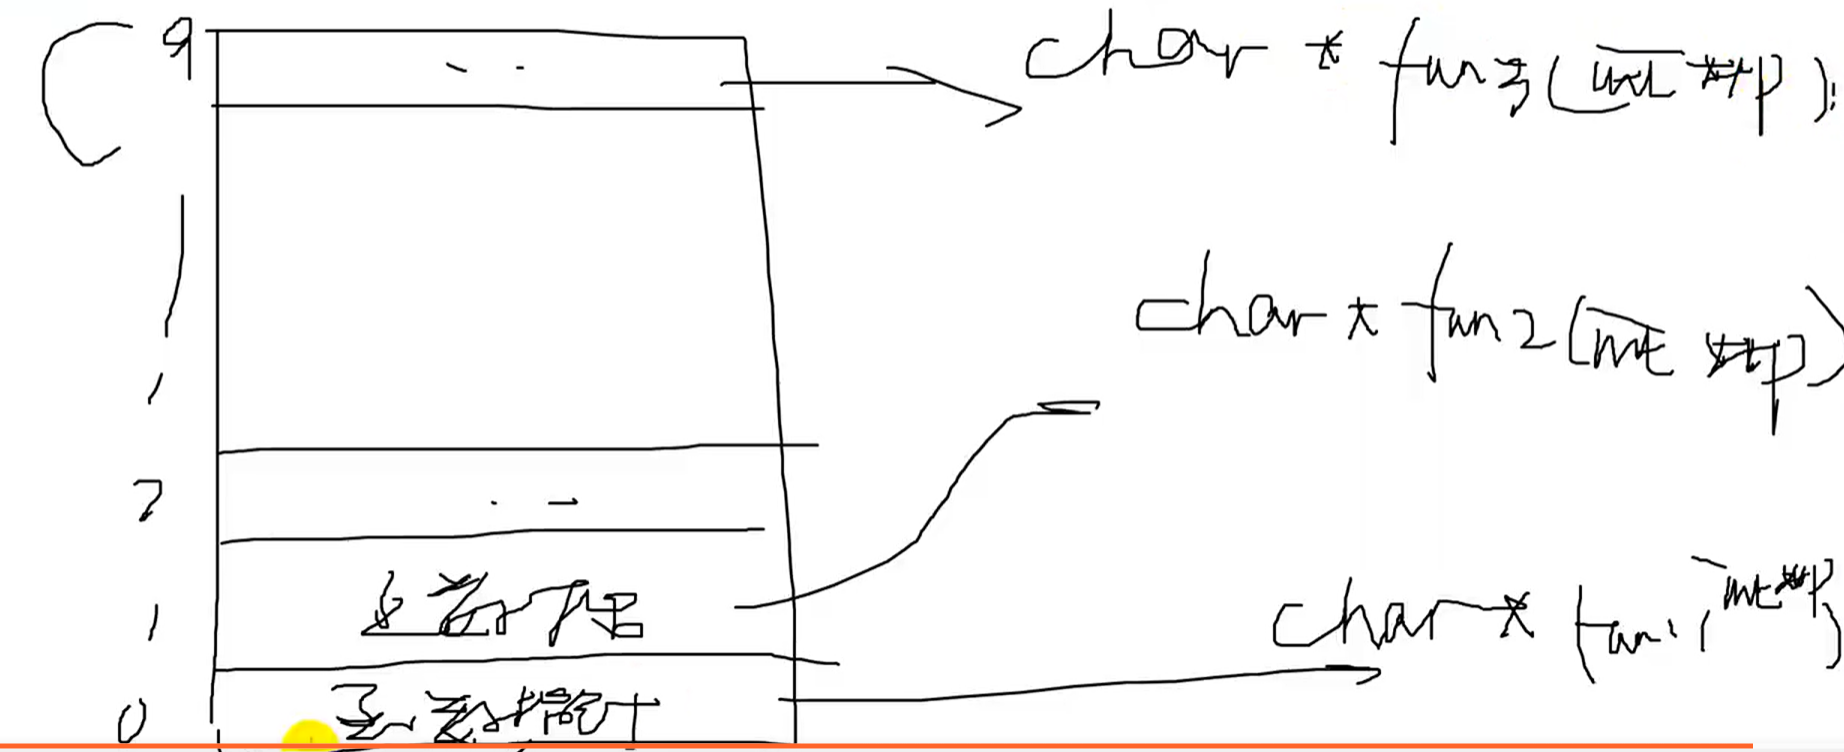 9 char * fun3(int **p);
char * fun2(int **p)
2
1
char * fun1(int **p)
0 函数指针